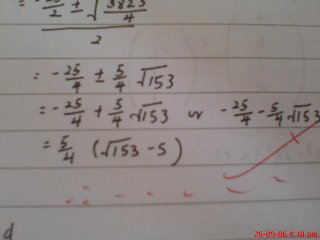 = -25/2 ± √(3825/4) / 2
= -25/4 ± 5/4 √153
= -25/4 + 5/4 √153 or -25/4 - 5/4 √153
= 5/4 (√153 - 5)
d
26-09-06 4:10 pm